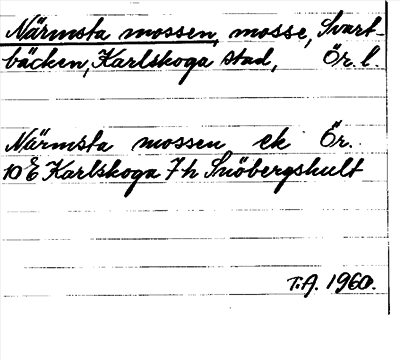 Närmsta mossen, mosse, Svart-
bäcken, Karlskoga stad, Ör. l.
Närmsta mossen ek Ör.
10 E Karlskoga 7 h Snöbergshult
T.A. 1960.